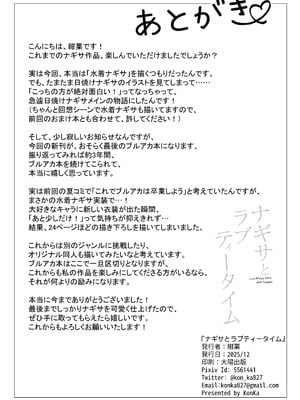 あとがき♡
こんにちは、紺菓です！
これまでのナギサ作品、楽しんでいただけましたでしょうか？
実は今回、本当は「水着ナギサ」を描くつもりだったんです。
でも、たまたま日焼けナギサのイラストを見てしまって……
「こっちの方が絶対面白い！」ってなっちゃって、
急遽日焼けナギサメインの物語にしたんです！
（ちゃんと回想シーンで水着ナギサも描いてますので、
前回のおまけ本とも合わせて、許してください！）
そして、少し寂しいお知らせなんですが、
今回の新刊が、おそらく最後のブルアカ本になります。
振り返ってみれば約3年間、
ブルアカ本を続けてこられて、
本当に嬉しく思っています。
実は前回の夏コミで「これでブルアカは卒業しよう」と考えていたんですが、
まさかの水着ナギサ実装で…！
大好きなキャラに新しい衣装が出た瞬間、
「あと少しだけ！」って気持ちが抑えきれず…
結果、24ページほどの描き下ろしを描いてしまいました。
これからは別のジャンルに挑戦したり、
オリジナル同人も描いてみたいなと考えています。
ブルアカ本はここで一旦区切りとなりますが、
これからも私の作品を楽しみにしてくださる方がいるなら、
それが何よりの励みになります。
本当に今までありがとうございました！
最後までしっかりナギサを可愛く仕上げたので、
ぜひ手に取ってもらえたら嬉しいです。
これからもよろしくお願いいたします！
ナギサと
ラブ
ティータイム
『ナギサとラブティータイム』
発行者：紺菓
発行日：2025/12
印刷：大陽出版
Pixiv Id: 5561441
Twitter: @kon_ka827
Email:konka827@gmail.com
Presented by KonKa